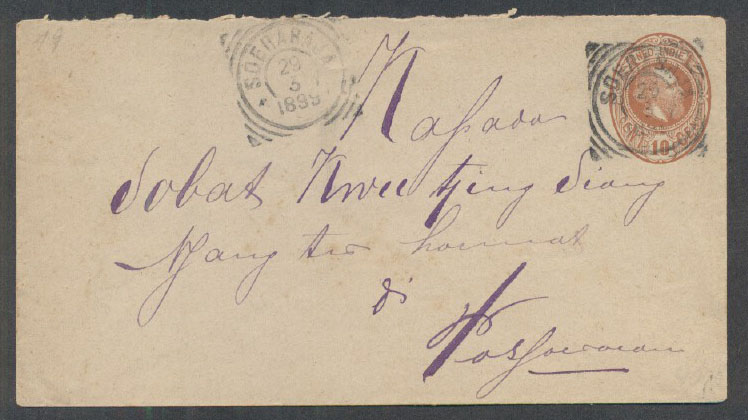 19
SOERABAJA
29
3
1899
NED. INDIE
SOERABAJA
29
10 CENT
Kapada
Sobat Kwee Tjing Siang
Yang ter hormat
di
Passoeroean